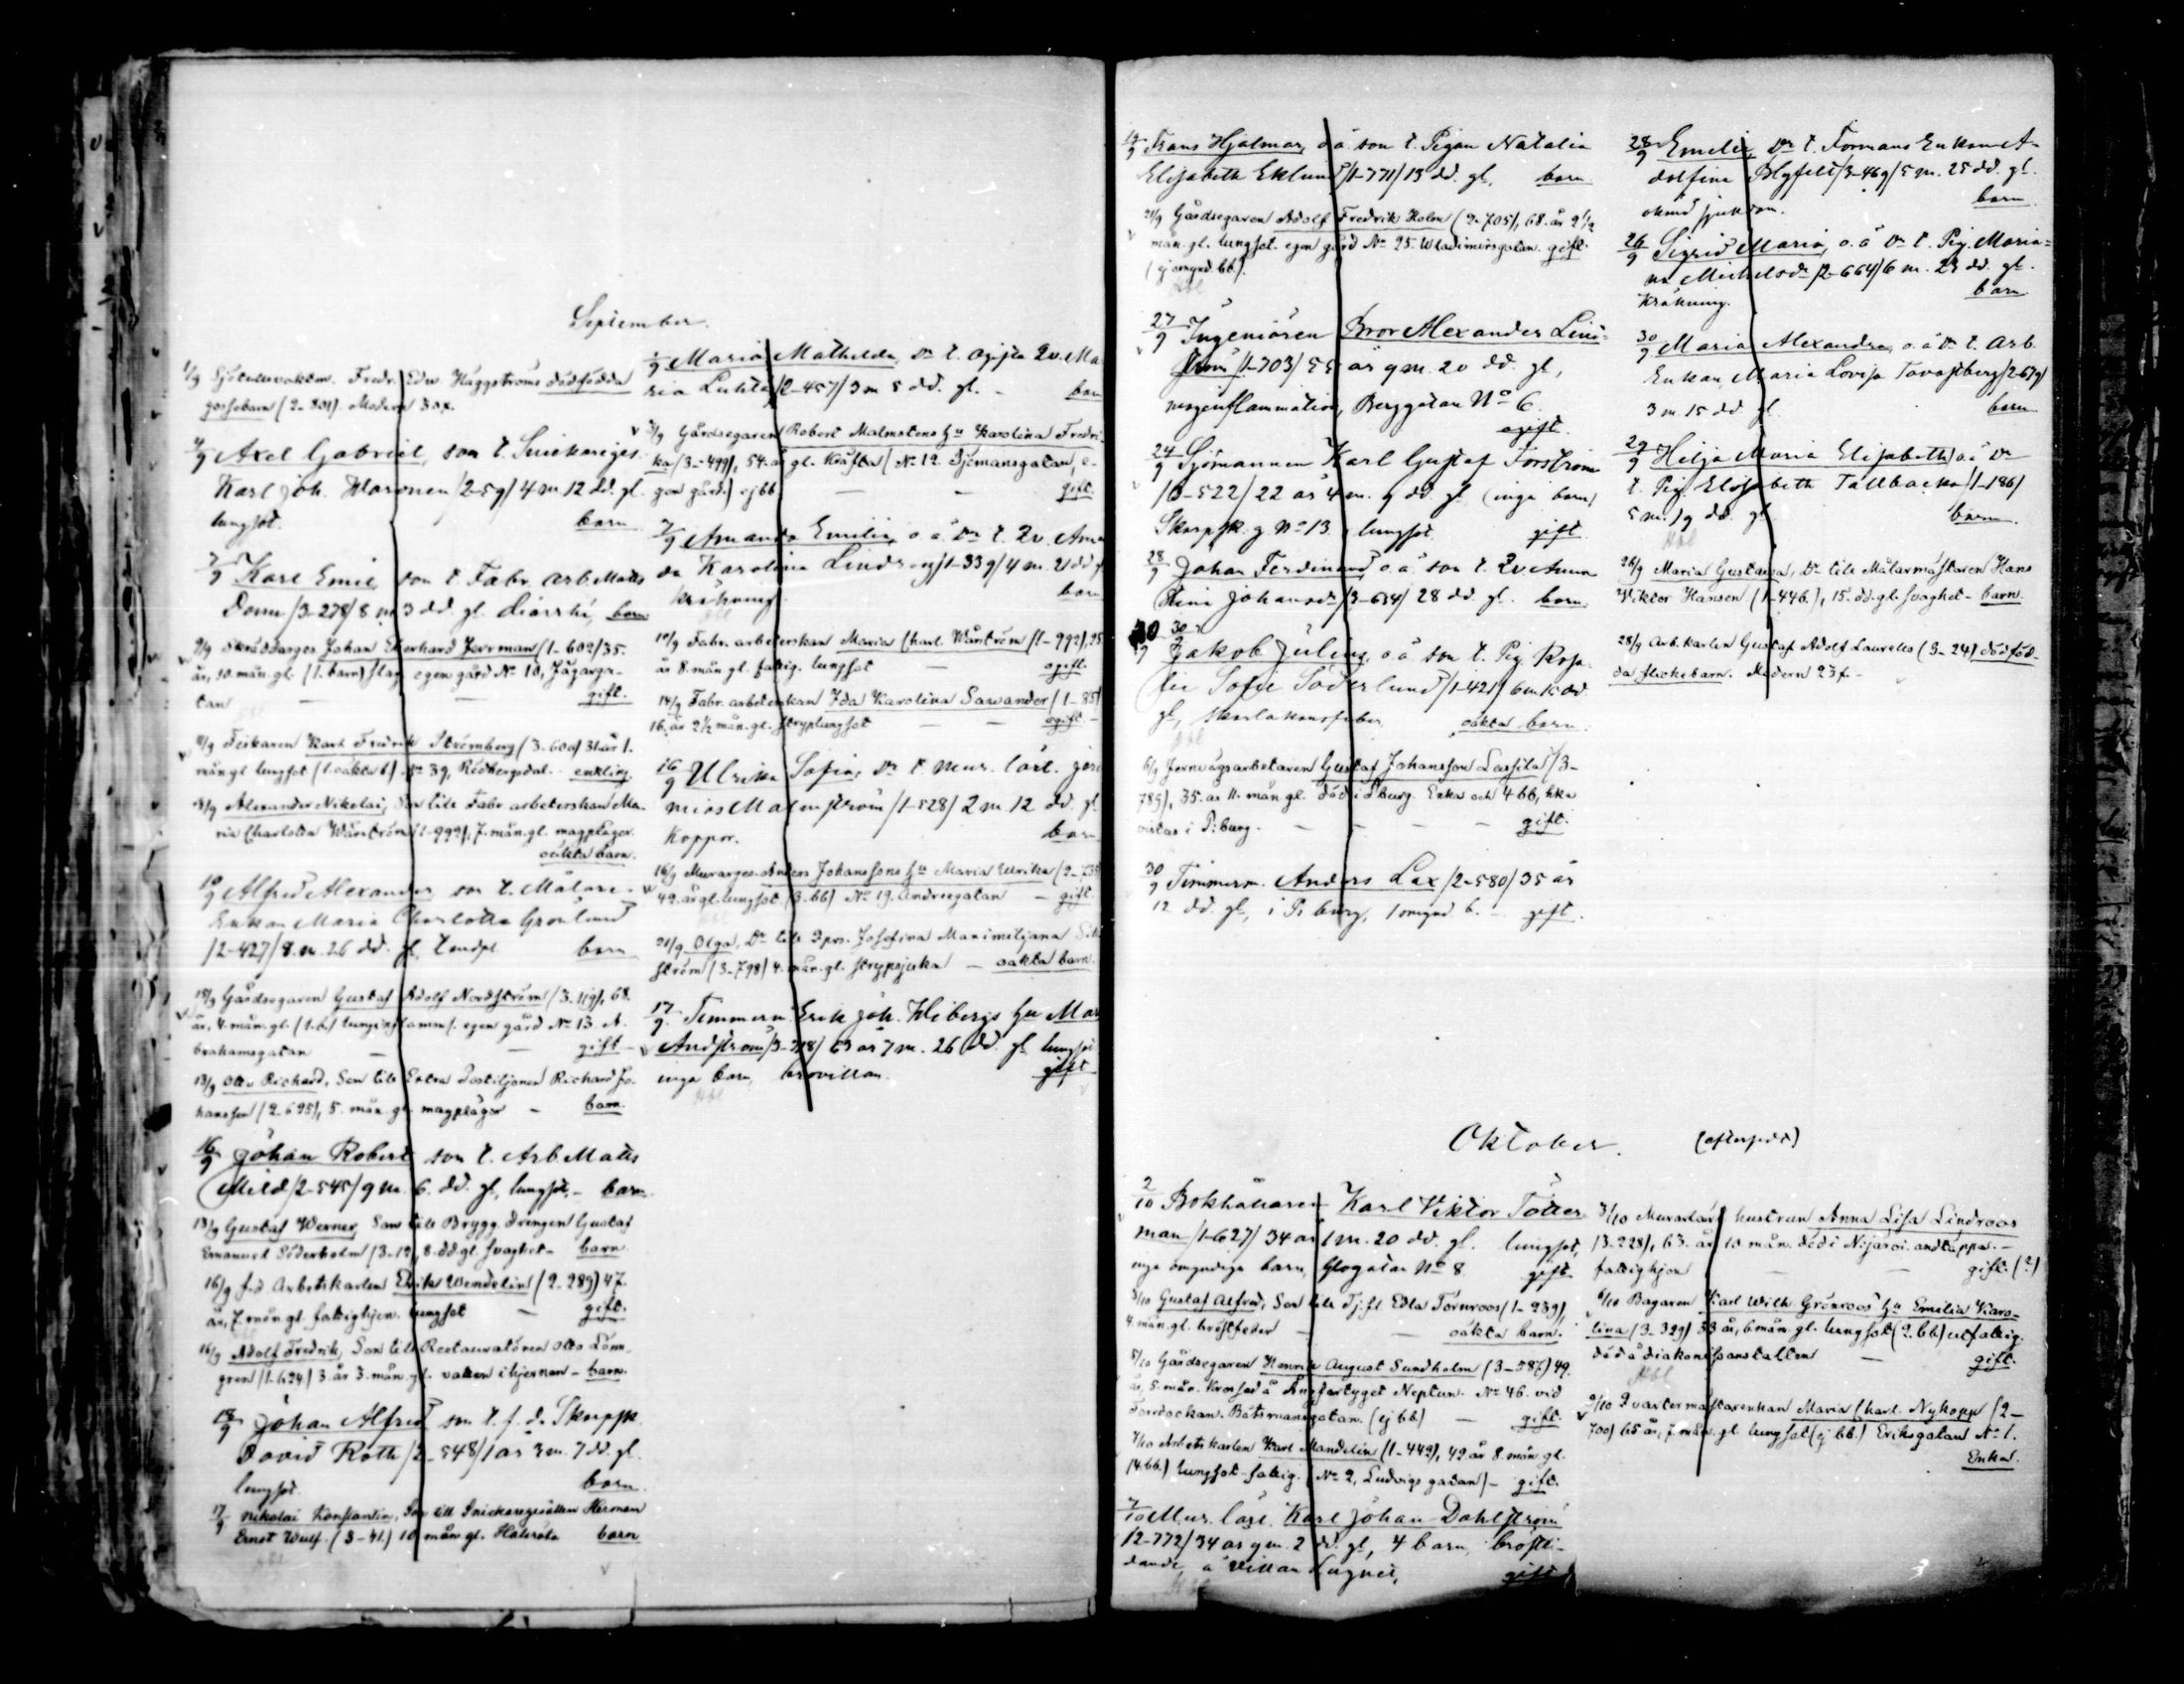 September.
1/9 Fredr. Edw Häggströms dödfödda
gossebarn (2-801). Modern 30 f.
4/9 Axel Gabriel, son t. Snickariges.
Karl Joh. Waronen /2-59/ 4 m 12 dd. gl.
lungsot. barn
7/9 Karl Emil son t. Fabr. arb. Matts
Donn /3-278/ 8 m 3 dd gl. barn
9/9 Skräddarges. Johan Ekerhard Jerrman (1-602) 35.
år, 10. mån. gl. (1. barn) slag egen gård No 10, Jägarga-
tan — — gift.
11/9 Fiskaren Karl Fredrik Strömberg (3-600) 31 år 1.
mån gl lungsot (1. oäkta b.) No 39, Rödbergsdal. enkling
Alexander Nikolai, Son till Fabr. arbeterskan Ma-
ria Charlotta Wänström (1-992), 7. mån. gl. magplågor.
oäkta barn.
10/9 Alfred Alexander, son t. Målare-
Enkan Maria Charlotta Grönlund
/2-427/ 8 m. 26 dd. gl, barn
Gårdsegaren Gustaf Adolf Nordström (3-119), 68.
år, 4. mån. gl. (1. b.) lunginflamm. egen gård No 13. A.
brahamsgatan — — gift -
13/9 Otto Richard, Son till Extra Postiljonen Richard Jo-
hansson (2-695), 5. mån. gl. magplågor - barn.
16/9 Johan Robert son t. Arb Matts
Mild /2-545/ 9 m. 6. dd. gl, lungsot, - barn
13/9 Gustaf Werner, Son till Brygg. drengen Gustaf
Emanuel Söderholm (3-12), 8. dd. gl. svaghet - barn
16/9 f.d. Arbetskarlen Erik Wendelin (2-289) 47.
år, 7. mån gl. fattighjon. lungsot — gift.
16/9 Adolf Fredrik, Son till Restauratören Otto Lönn-
gren (1-624) 3. år 3. mån. gl. vatten i hjernan - barn.
18/9 Johan Alfred son t. f. d. Skarpsk.
David Roth /2-548/ 1 år 3 m. 7 dd. gl.
lungsot. barn
17/9 Nikolai Konstantin, Son till Snickaregesällen Herman
Ernst Wulf. (3-41.) 10 mån gl. barn
1/9 Maria Mathilda, dr t. ogifta Qv. Ma
ria Luhta /2-457/ 3 m 5 dd. gl. - barn
5/9 Gårdsegaren Robert Malmstens hu Karolina Fredri-
ka (3-499), 54. år gl. Kräfta (No 12 Sjömansgatan, e-
gen gård) ej bb — — gift.
7/9 Amanda Emilia, o ä. dr t. Qv. Aman
da Karolina Lindroos /1-339/ 4 m. 21 dd gl
kräkning. barn
10/9 Fabr. arbeterskan Maria Charl. Wänström (1-992), 25
år 8. mån gl. fattig. lungsot — ogift.
14/9 Fabr. arbeterskan Ida Karolina Sawander (1-85)
16. år 2½ mån. gl. lungsot — ogift -
16/9 Ulrika Sofia, dr t. mur. lärl. Jere
mias Malmström /1-528/ 2 m. 12 dd. gl
Koppor. barn
16/9 Murarges. Anders Johanssons hu Maria Ulrika
49. år gl. lungsot (3. bb) No 19. Andregatan — gift.
21/9 Olga, Dr till Qprs. Josefina Maximiljana
ström (3-798) 4. mån. gl. strypsjuka — oäkta barn.
17/9. Timmerm. Erik Joh. Hibergs hu Mar
Andström /3-718/ 63 år 7 m. 26 dd. gl. lungsot
inga barn, brovillan. gift
19/9 Frans Hjalmar, o ä. son t. Pigan Natalia
Elisabeth Eklund /1-771/ 13 dd. gl. barn
21/9 Gårdsegaren Adolf Fredrik Holm (2-705), 68. år 9½
mån. gl. lungsot. egen gård No 25. Wladimirsgatan. gift.
(ej omynd. bb).
27/9 Ingeniören Bror Alexander Lind-
ström /1-703/ 55 år 9 m. 20 dd. gl,
magenflammation, Berggatan No 6.
ogift.
24/9 Sjömannen Karl Gustaf Forsström
/3-522/ 22 år 4 m. 9 dd. gl (inga barn)
Skarpsk. g No 13. lungsot. gift.
28/9 Johan Ferdinand o. ä. son t. Qv. Anna
Stina Johansdr /3-634/ 28 dd. gl. barn.
30/9 Jakob Julius, o ä son t. Pig. Rosa-
lie Sofie Söderlund /1-421/ 6 m 15 dd.
gl, skarlakansfeber, oäkta barn.
6/9 Jernvägsarbetaren Gustaf Johansson Lassila (3-
789), 35. år 11. mån gl. död i S:burg. Enka och 4 bb, hka
vistas i P:burg. — — gift.
30/9 Timmerm. Anders Lax /2-580/ 35 år
12 dd. gl, i Ps burg, 1 omynd. b. - gift.
28/9 Emelie, dr t. Formans Enkan A-
dolfina Blyfelt /3-469/ 5 m. 25 dd. gl.
okänd sjukdom. barn
26/9 Sigrid Maria, o. ä dr t. Pig. Maria-
na Mickelsdr /2-664/ 6 m. 23 dd. gl.
kräkning. barn
30/9 Maria Alexandra, o. ä dr t. Arb.
Enkan Maria Lovisa Tavastberg /2-679/
3 m. 15 dd gl. barn
29/9 Hilja Maria Elisabeth, o ä dr
t. Pig. Elisabeth Tallbacka /1-186/
5 m. 19 dd. gl barn.
26/9 Maria Gustava, Dr till Målarmästaren Hans
Viktor Hansen (1-446.), 15. dd. gl. svaghet - barn.
28/9 Arb. karlen Gustaf Adolf Laurells (3-24) dödföd-
da flickebarn. Modern 23 f. -
Oktober. (efterspel)
2/10 Bokhållaren Karl Viktor Tötter
man /1-627/ 34 år 1 m. 20 dd. gl. lungsot,
inga omyndiga barn, Glogatan No 8. gift.
5/10 Gustaf Alfred, Son till Tj. fl. Edla Törnroos (1-239),
4. mån. gl. — oäkta barn.
5/10 Gårdsegaren Henrik August Sundholm (3-387) 49.
år, 5. mån. Krossad å Ångfartyget Neptun. No 46. vid
Torrdockan. Båtsmansgatan. (ej bb) — gift.
7/10 Arbetskarlen Karl Mandelin (1-449), 42 år 8. mån gl.
(4. bb.) lungsot - fattig. (No 2, Ludvigs gatan) - gift.
7/10 Mur. lärl. Karl Johan Dahlström
/2-772/ 34 år 9 m. 2 dd. gl, 4 barn, bröstli-
dande, å villan Lugnet, gift
3/10 Murarlärl hustrun Anna Lisa Lindroos
(3-228), 63. år 10 mån. död i andtäppa. —
fattighjon — — gift. (?)
6/10 Bagaren Karl Wilh. Grönroos' hu Emilia Karo-
lina (3-329) 33 år, 6 mån. gl. lungsot (2. bb) utfattig.
död å diakonissanstalten — gift.
9/10 Qvartermästarenkan Maria Charl. Nykopp (2-
700) 65 år, 7. mån. gl lungsot (ej bb.) Eriksgatan No 1.
Enka.